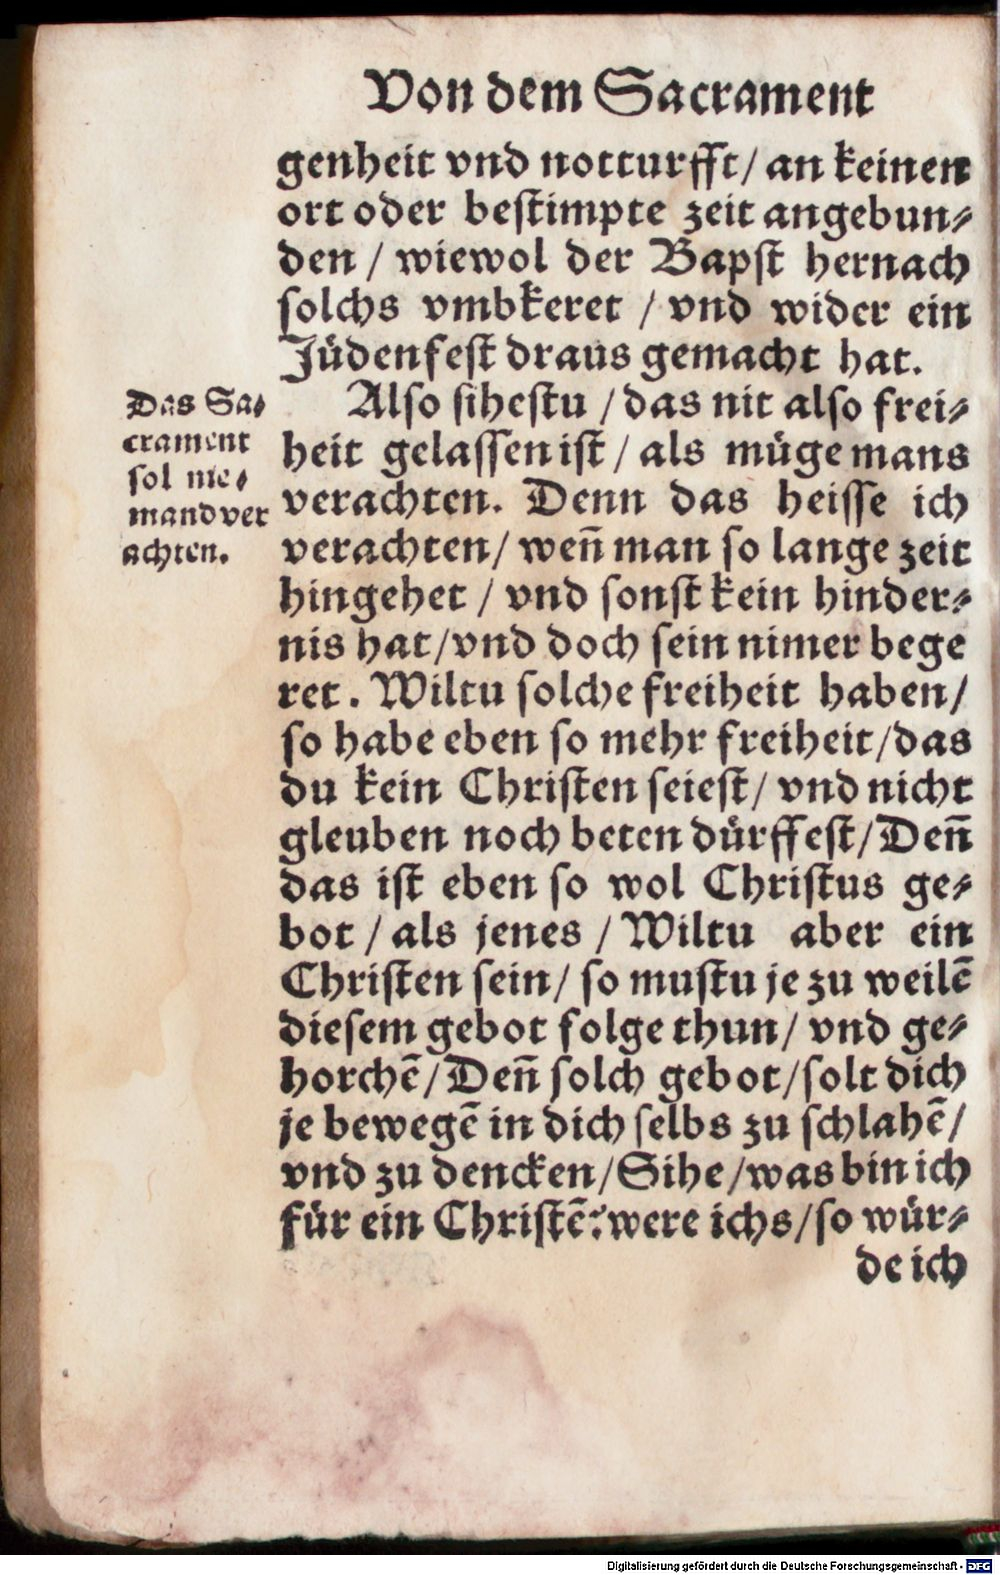 Von dem Sacrament
genheit vnd notturfft/ an keinen
ort oder bestimpte zeit angebun⸗
den / wiewol der Bapst hernach
solchs vmbkeret / vnd wider ein
Jüdenfest draus gemacht hat.
Das Sa⸗
crament
sol nie⸗
mand ver
achten.
Also sihestu / das nit also frei⸗
heit gelassen ist / als müge mans
verachten. Denn das heisse ich
verachten/ weñ man so lange zeit
hingehet / vnd sonst kein hinder⸗
nis hat/vnd doch sein nimer bege
ret. Wiltu solche freiheit haben/
so habe eben so mehr freiheit/das
du kein Christen seiest/ vnd nicht
gleuben noch beten dürffest/Deñ
das ist eben so wol Christus ge⸗
bot / als jenes / Wiltu aber ein
Christen sein/ so mustu je zu weilē
diesem gebot folge thun/ vnd ge⸗
horchē/Deñ solch gebot/solt dich
je bewegē in dich selbs zu schlahē/
vnd zu dencken/Sihe/was bin ich
für ein Christē? were ichs/so wür⸗
de ich
Digitalisierung gefördert durch die Deutsche Forschungsgemeinschaft - DFG